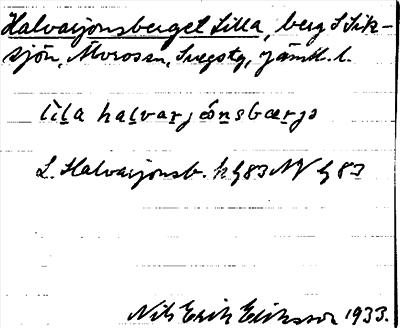 Halvarjonsberget Lilla, berg S Sik-
sjön, Älvrosen, Svegstg, Jämtl. l.
lila halvarjónsbærjə
L. Halvarjonsb. h G83 NV G 83
Nils Erik Eliksson 1933.